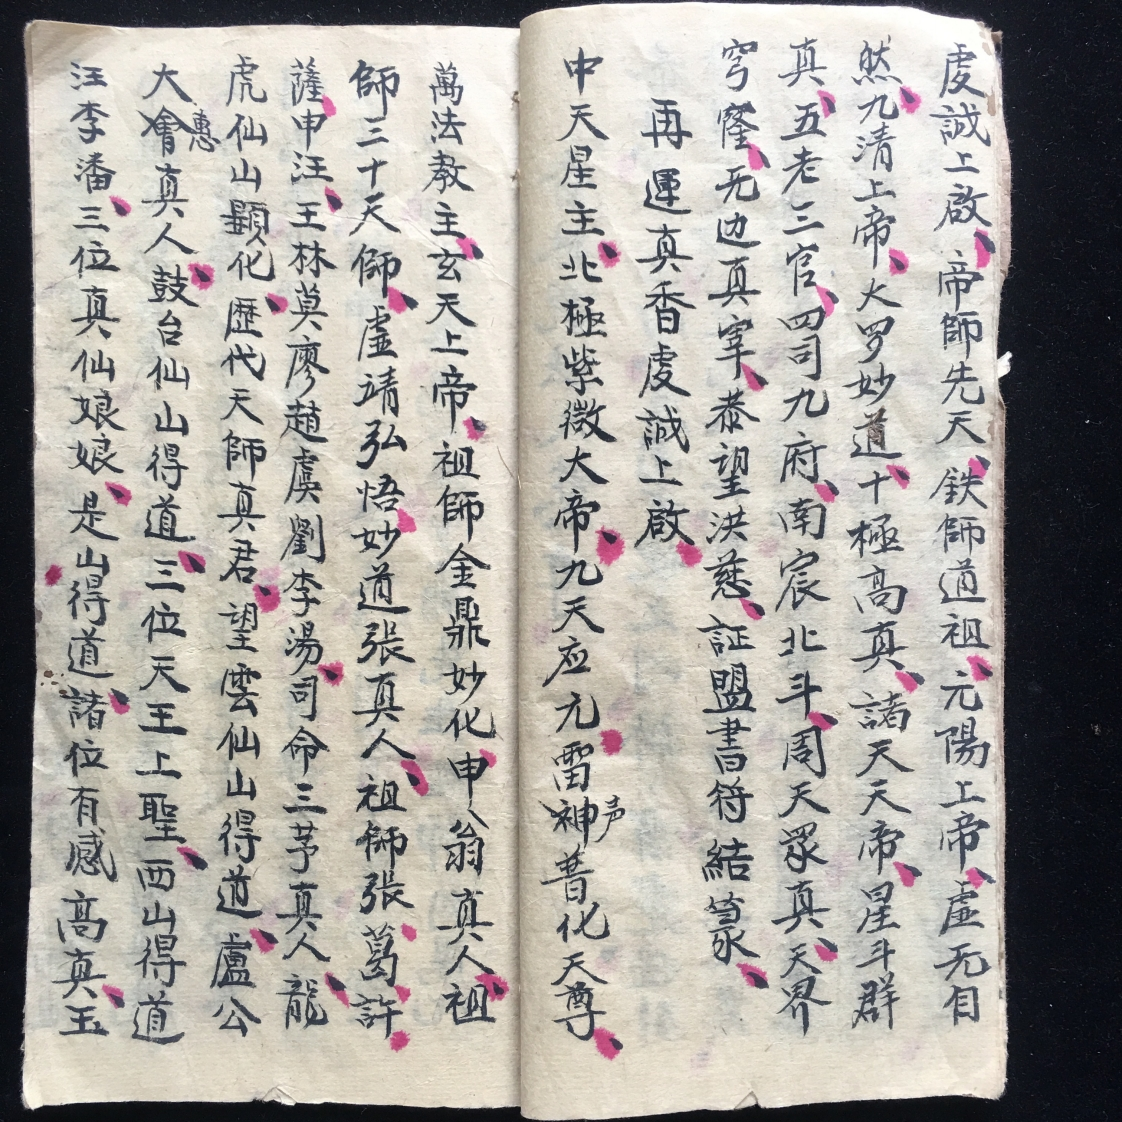 虔誠上啟帝師先天鉄師道祖元陽上帝虛无自
然九清上帝大罗妙道十極高真諸天天帝星斗群
真五老三官四司九府南宸北斗周天眾真天界
穹窿无边真宰恭望洪慈証盟書符結篆
再運真香虔誠上啟
中天星主北極紫微大帝九天应元雷神声普化天尊
萬法教主玄天上帝祖師金鼎妙化申公翁真人祖
師三十天師虛靖弘悟妙道張真人祖師張葛許
薩申汪王林莫廖趙虞劉李湯司命三茅真人龍
虎仙山顯化歷代天師真君望雲仙山得道盧公
大會惠真人鼓台仙山得道三位天王上聖西山得道
汪李潘三位真仙娘娘是山得道諸位有感高真玉